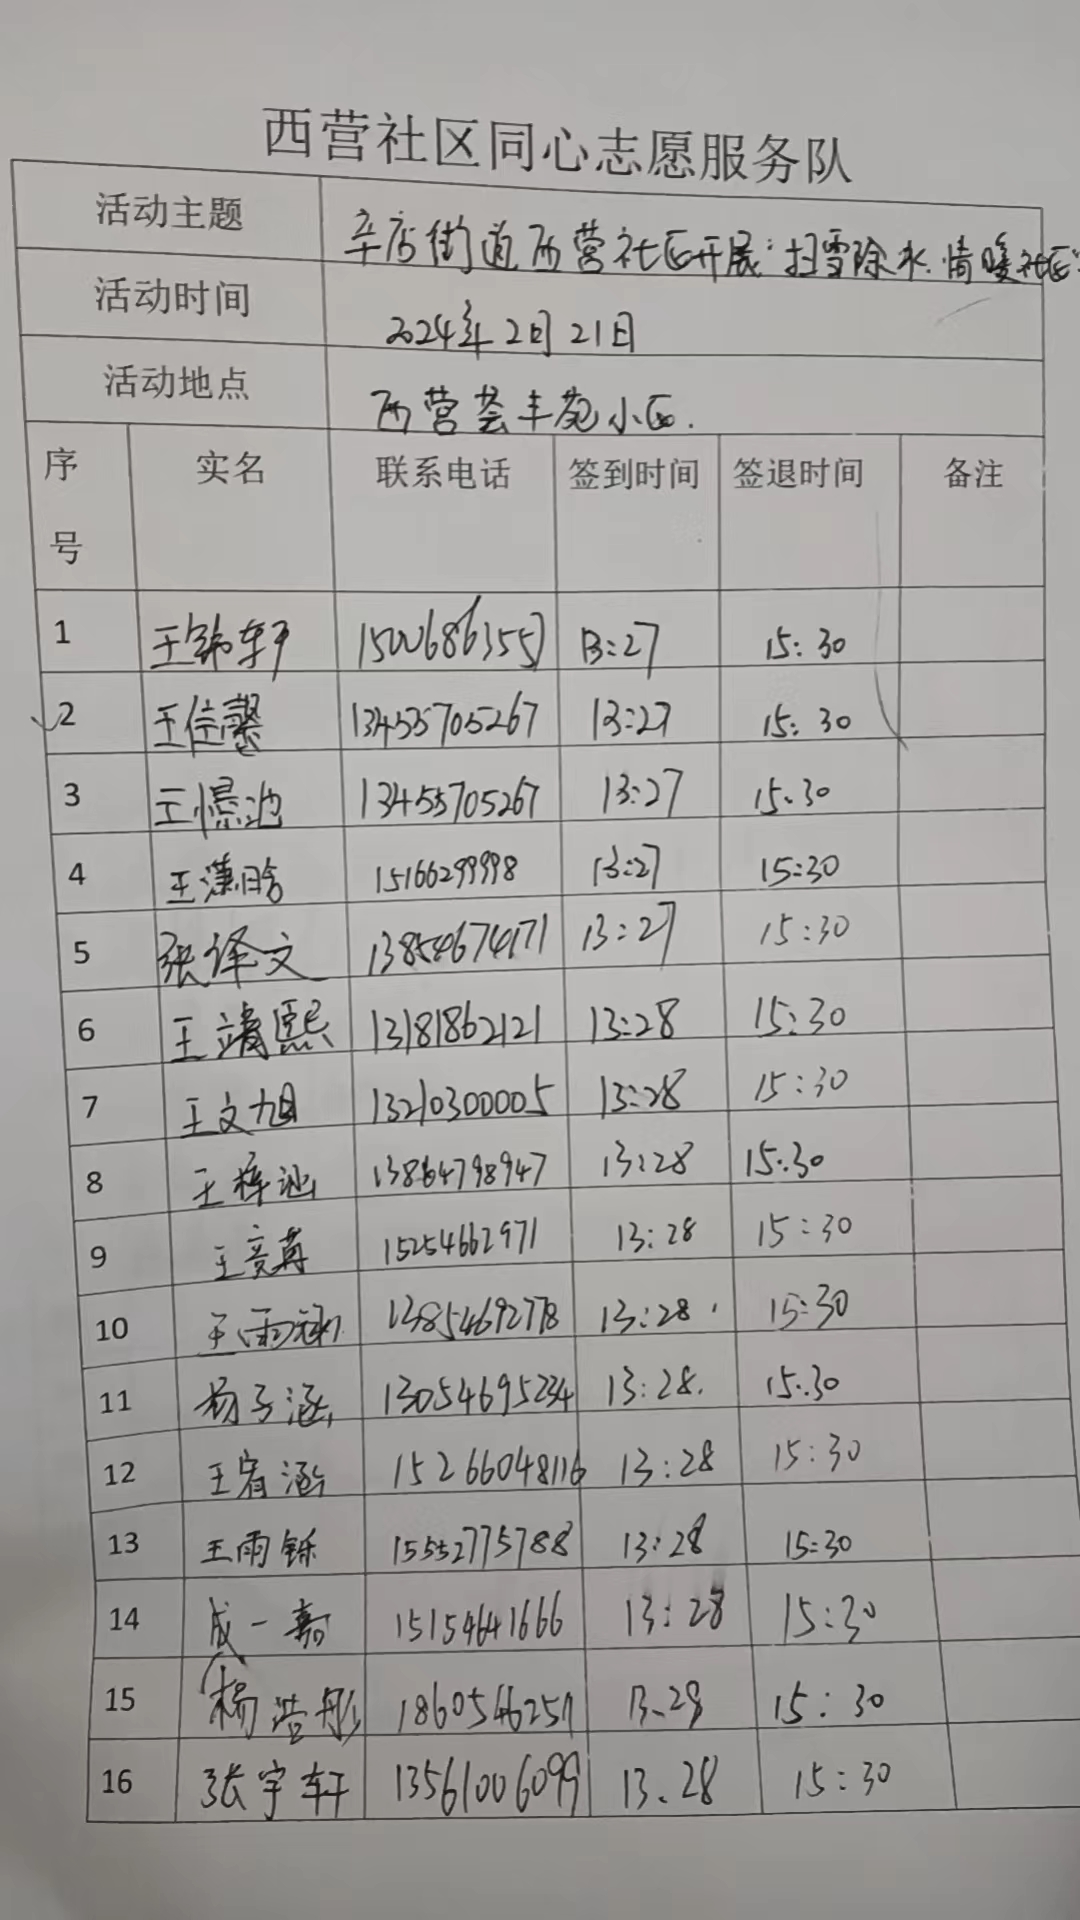 西营社区同心志愿服务队
活动主题 辛店街道西营社区开展"扫雪除冰.情暖社区"
活动时间 2024年2月21日
活动地点 西营荟丰苑小区.
序号 实名 联系电话 签到时间 签退时间 备注
1 王轩 13:27 15:30
2 王佳馨 13455705267 13:27 15:30
3 王池 13455705267 13:27 15:30
4 王晗 15166299998 13:27 15:30
5 张译文 13854674171 13:27 15:30
6 王靖熙 13181862121 13:28 15:30
7 王文旭 13210300005 13:28 15:30
8 王梓 13864798947 13:28 15:30
9 王 15254662971 13:28 15:30
10 王雨涵 13854692778 13:28 15:30
11 杨子涵 13054695234 13:28. 15:30
12 王宥涵 15266048116 13:28 15:30
13 王雨铄 15552775788 13:28 15:30
14 成一嘉 15154641666 13:28 15:30
15 杨浩彤 13.28 15:30
16 张宇轩 13561006099 13.28 15:30